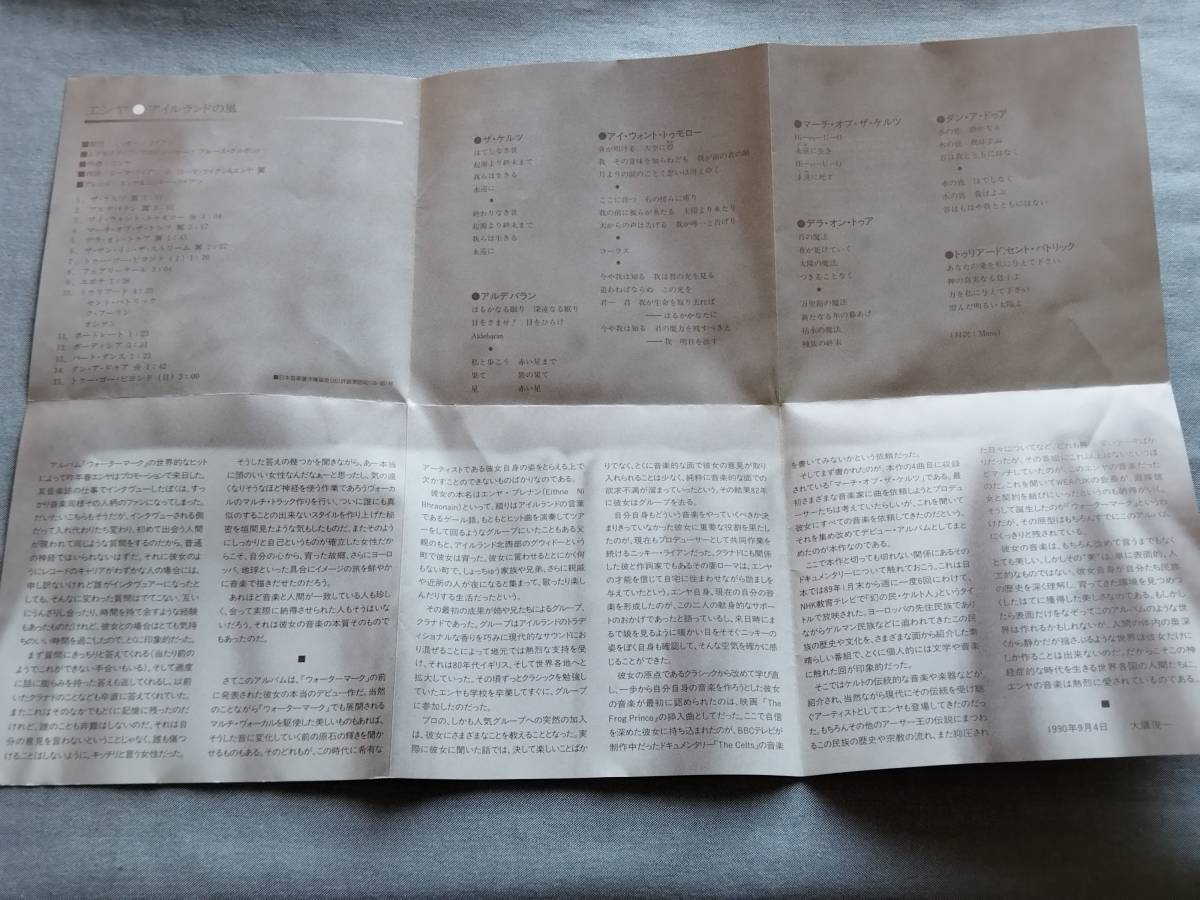 エンヤ●アイルランドの風
1. ザ・ケルツ
2. アルデバラン
3. アイ・ウォント・トゥモロー
4. マーチ・オブ・ザ・ケルツ
5. デラ・オン・トゥア
6. ザ・サン・イン・ザ・ストリーム
7. トゥー・ゴー・ビヨンド (I) 1:20
8. フェアリーテール 3:04
9. エポナ 1:36
10. トゥリアード 4:25
セント・パトリック
ク・フーリン
オシアン
11. ポートレート 1:23
12. ボーディシア 3:31
13. バード・ダンス 1:23
14. ダン・ア・ドゥア 1:43
15. トゥー・ゴー・ビヨンド (II) 3:00
●ザ・ケルツ
はてしなき昔
起源より終末まで
我らは生きる
永遠に
●
終わりなき昔
起源より終末まで
我らは生きる
永遠に
●アルデバラン
はるかなる眠り 深遠なる眠り
目をさませ! 目をひらけ
Aldebaran
●
私と歩こう 赤い星まで
果て 旅の果て
星 赤い星
●アイ・ウォント・トゥモロー
我 その意味を知らねども 我が前の君の顔
●
ここに待つ 石の傍らに座り
我の前に彼らが来たる 太陽より来たり
天からの声は告げる 我が唯一と告げり
●
コーラス
●
今や我は知る 我は君の光を見る
追わねばならぬ この光を
君― 君 我が生命を取り去れば
――はるかかなたに
今や我は知る 君の魔力を残すべきと
――我 明日を欲す
●マーチ・オブ・ザ・ケルツ
永遠に生き
永遠に死す
●デラ・オン・トゥア
月の魔法
夜が更けていく
太陽の魔法
つきることなく
●
万聖節の魔法
新たなる年の幕あけ
枯水の魔法
種族の終末
●ダン・ア・ドゥア
水の底 静かなる
水の底 我はよぶ
月は我とともにはなく
●
水の底 はてしなく
水の底 我はよぶ
谷はもはや我とともにはない
●トゥリアード:セント・パトリック
あなたの愛を私に与えて下さい
神の真実なる息子よ
力を私に与えて下さい
澄んだ明るい太陽よ
(対訳:Mana)
アルバム『ウォーターマーク』の世界的なヒット
によって昨年春エンヤはプロモーションで来日した。
某音楽誌の仕事でインタヴューしたぼくは、すっ
かり音楽同様その人柄のファンになってしまった。
だいたいこちらもそうだが、インタヴューされる側
だって入れ代わりたち変わり、初めて出会う人間
が現われて同じような質問をするのだから、普通
の神経ではいられないはずだ、それに彼女のよ
うにレコードのキャリアがわずかな人の場合には、
申し訳ないけれど誰がインタヴュアーになったと
しても、そんなに変わった質問はでてこない。互い
にうんざりし合ったり、時間を持て余すような経験
もあったものだけれど、彼女との場合はとても気持
ちのいい時間を過ごしたので、とくに印象的だった。
まず質問にきっちりと答えてくれる(当たり前の
ようでこれができない手合いもいる)、そして適度
に話に膨らみを持った答えも返してくれるし、以前
いたクラナドのことなども率直に答えてくれていた。
またこれはそのなかでもとくに記憶に残ったのだ
けれど、誰のことも非難はしないのだ。それは自
分の意見を言わないということじゃなく、誰も傷つ
けることはしないように、キッチリと言う女性だった。
そうした答えの幾つかを聞きながら、あー本当
に頭のいい女性なんだなぁーと思ったし、気の遠
くなりそうなほど神経を使う作業であろうヴォーカ
ルのマルチ・トラック作りを行い、ついに誰にも真
似のすることの出来ないスタイルを作り上げた秘
密を垣間見たような気もしたものだ。またそのよう
にしっかりと自己というものが確立した女性だから
こそ、自分の心から、育った故郷、さらにヨーロ
ッパ、地球といった具合にイメージの旅を鮮やか
に音楽で描きだせたのだろう。
あれほど音楽と人間が一致している人も珍し
く、会って実際に納得させられた人もそうはいな
いだろう。それは彼女の音楽の本質そのもので
もあったのだ。
■
さてこのアルバムは、『ウォーターマーク』の前
に発表された彼女の本当のデビュー作だ。当然
のことながら『ウォーターマーク』でも展開される
マルチ・ヴォーカルを駆使した美しいものもあれば、
そうした音に変化していく前の原石の輝きを聞か
せるものもある。そのどれもが、この時代に希有な
アーティストである彼女自身の姿をとらえる上で
欠かすことのできないものばかりなのである。
彼女の本名はエンヤ・ブレナン(Eithne Ni
Bhraonain)といって、綴りはアイルランドの言葉
であるゲール語。もともとヒット曲を演奏してツア
ーをして回るようなグループにいたこともある父
親のもと、アイルランド北西部のグウィドーという
町で彼女は育った。彼女に言わせるととにかく何
もない町で、しょっちゅう家族や兄弟、さらに親戚
や近所の人が夜になると集まって、歌ったり楽し
んだりする生活だったという。
その最初の成果が姉や兄たちによるグループ、
クラナドであった。グループはアイルランドのトラデ
ィショナルな香りを巧みに現代的なサウンドにお
り混ぜることによって地元では熱烈な支持を受
け、それは80年代イギリス、そして世界各地へと
拡大していった。その頃ずっとクラシックを勉強し
ていたエンヤも学校を卒業してすぐに、グループ
に参加したのだった。
プロの、しかも人気グループへの突然の加入
は、彼女にさまざまなことを教えることとなった。実
際に彼女に聞いた話では、決して楽しいことばか
りでなく、とくに音楽的な面で彼女の意見が取り
入れられることは少なく、純粋に音楽的な面での
欲求不満が溜まっていったという。その結果82年
に彼女はグループを去る。
自分自身もどういう音楽をやっていくべきか決
まりきっていなかった彼女に重要な役割を果たし
たのが、現在もプロデューサーとして共同作業も
続けるニッキー・ライアンだった。クラナドにも関係
した彼と作詞家でもあるその妻ローマは、エンヤ
の才能を信じて自宅に住まわせながら励ましを
与えていたという。エンヤ自身、現在の自分の音
楽を形成したのが、この二人の献身的なサポー
トのおかげであったと語っているし、来日時にま
るで娘を見るように暖かい目をそそぐニッキーの
姿をぼく自身も確認して、そんな空気を確かに感
じることができた。
彼女の原点であるクラシックから改めて学び直
し、一歩から自分自身の音楽を作ろうとした彼女
の音楽が最初に認められたのは、映画『The
Frog Prince』の挿入曲としてだった。ここで自信
を深めた彼女に持ち込まれたのが、BBCテレビが
制作中だったドキュメンタリー『The Celts』の音楽
を書いてみないかという依頼だった。
そしてまず書かれたのが、本作の4曲目に収録
されている「マーチ・オブ・ザ・ケルツ」である。最
初さまざまな音楽家に曲を依頼しようとプロデュ
ーサーたちは考えていたらしいが、これを聞いて
彼女にすべての音楽を依頼してきたのだという。
それを集め改めてデビュー・アルバムとしてまと
めたのが本作なのである。
ここで本作と切っても切れない関係にあるその
ドキュメンタリーについて触れておこう。これは日
本では89年1月末から週に一度6回にわけて、
NHK教育テレビで『幻の民・ケルト人』というタイ
トルで放映された。ヨーロッパの先住民族であり
ながらゲルマン民族などに追われてきたこの民
族の歴史や文化を、さまざまな面から紹介した素
晴らしい番組で、とくに個人的には文字や音楽
に触れた回が印象的だった。
そこではケルトの伝統的な音楽や楽器などが
紹介され、当然ながら現代にその伝統を受け継
ぐアーティストとしてエンヤも登場してきたのだっ
た。もちろんその他のアーサー王の伝説にまつわ
るこの民族の歴史や宗教の流れ、また抑圧され
た日々についてなど、どれも興
だったが、その各番組にこれ以上はないというほ
どマッチしていたのが、このエンヤの音楽だった
のだ。これを聞いてWEA/UKの会長が、直接彼
女と契約を結びにいったというのも納得がいく。
そうして誕生したのが『ウォーターマーク』
けだが、その原型はもちろんすでにこのアルバム
にくっきりと残されている。
彼女の音楽は、もちろん改めて言うまでもなく
とても美しい。しかしその“美”は、単に表面的、人
工的なものではない。彼女自身が自分たち民族
の歴史を深く理解し、育ってきた環境を見つめつ
くしたはてに獲得した美しさなのである。もしかし
たら表面だけをなぞってこのアルバムのような世
界は作れるかもしれないが、人間の体内の奥深
くから静かだが揺さぶるような世界は彼女だけに
しか作ることは出来ないのだ。だからこそこの神
経症的な時代を生きる世界各国の人間たちに、
エンヤの音楽は熱烈に愛されているのである。
■
1990年9月4日 大鷹俊一